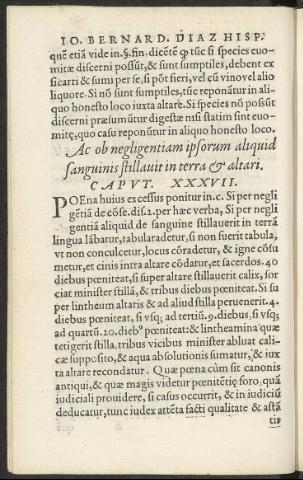 IO. BERNARD. DIAZ HISP.
quẽ etiã vide in. §. fin. dicẽtẽ ꝙ tũc si species euo-
mitæ discerni possũt, & sunt sumptiles, debent ex
siccarti & sumi per se, si põt fieri, vel cũ vino vel alio
liquore. Si nõ sunt sumptiles, tũc reponãtur in ali-
quo honesto loco iuxta altare. Si species nõ possũt
discerni præsumũtur digestæ nisi statim sint euo-
mitę, quo casu reponũtur in aliquo honesto loco.
Ac ob negligentiam ipsorum aliquid
sanguinis stillauit in terra & altari.
CAPVT. XXXVII.
POEna huius excessus ponitur in. c. Si per negli
gẽtiã de cõse. dis. 2. per hæc verba, Si per negli
gentiã aliquid de sanguine stillauerit in terrã
lingua lãbatur, tabula radetur, si non fuerit tabula,
vt non conculcetur, locus cõradetur, & igne cõsu
metur, et cinis intra altare cõdatur, et sacerdos. 40
diebus pœniteat, si super altare stillauerit calix, sor
ciat minister stillã, & tribus diebus pœniteat. Si su
per lintheum altaris & ad aliud stilla peruenerit. 4.
diebus pœniteat, si vsq; ad tertiũ. 9. diebus, si vsq;
ad quartũ. 20. diebꝰ pœniteat: & linthea mina quæ
tetigerit stilla, tribus vicibus minister abluat cali-
cæ supposito, & aqua absolutionis sumatur, & iux
ta altare recondatur. Quæ pœna cùm sit canonis
antiqui, & quæ magis videtur pœnitẽtię foro, quã
iudiciali prouidere, si casus occurrit, & in iudiciũ
deducatur, tunc iudex attẽta facti qualitate & astã
tis